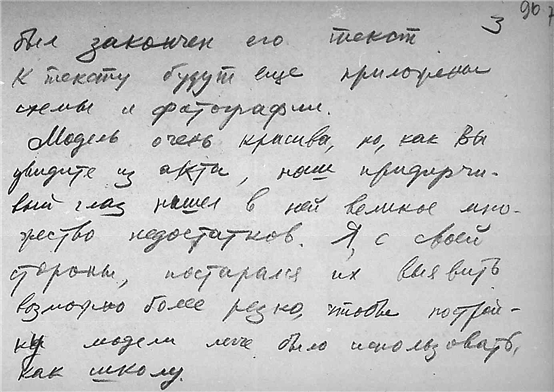 3 96 7
был закончен его текст
К тексту будут еще приложены
схемы и фотографии.
Модель очень красива, но, как Вы
увидите из акта, наш придирчи-
вый глаз нашел в ней великое мно-
жество недостатков. Я, с своей
стороны, постарался их выявить
возможно более резко, чтобы построй-
ку модели легче было использовать,
как школу.